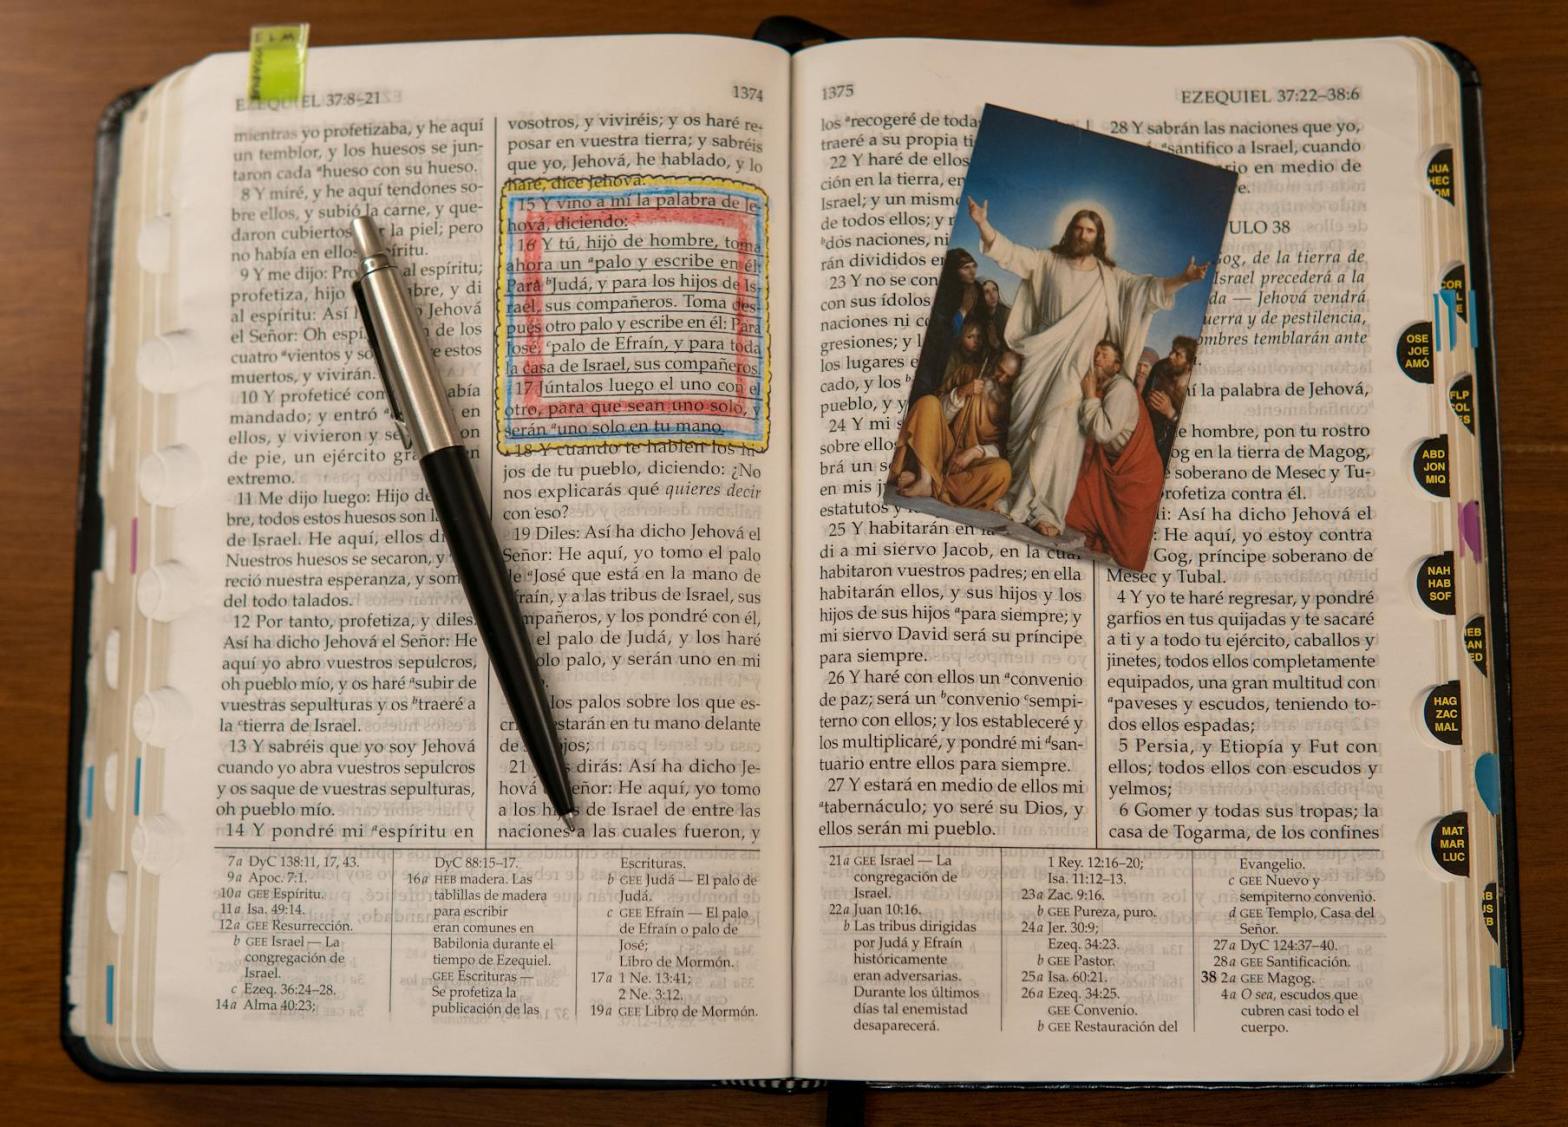 EZEQUIEL 37:8–21
1374
mientras yo profetizaba, y he aquí
un temblor, y los huesos se jun-
taron cada ᵃhueso con su hueso.
8 Y miré, y he aquí tendones so-
bre ellos, y subió la carne, y que-
daron cubiertos la piel; pero
no había en ellos espíritu.
9 Y me dijo: al espíritu;
profetiza, hijo y di
al espíritu: Así de los
cuatro ᵃvientos y estos
muertos, y vivirán.
10 Y profeticé había
mandado; y entró en
ellos, y vivieron y
de pie, un ejército en
extremo.
11 Me dijo luego: Hijo de
bre, todos estos huesos son
de Israel. He aquí, ellos
Nuestros huesos se secaron, y
reció nuestra esperanza, y
del todo talados.
12 Por tanto, profetiza, y diles:
Así ha dicho Jehová el Señor: He
aquí yo abro vuestros sepulcros,
oh pueblo mío, y os haré ᵃsubir de
vuestras sepulturas y os ᵇtraeré a
la ᶜtierra de Israel.
13 Y sabréis que yo soy Jehová
cuando yo abra vuestros sepulcros
y os saque de vuestras sepulturas,
oh pueblo mío.
14 Y pondré mi ᵃespíritu en
vosotros, y viviréis; y os haré re-
posar en vuestra tierra; y sabréis
que yo, Jehová, he hablado, y lo
haré, dice Jehová.
15 Y vino a mí la palabra de Je-
hová, diciendo:
16 Y tú, hijo de hombre, toma
ahora un ᵃpalo y escribe en él:
Para ᵇJudá, y para los hijos de Is-
rael, sus compañeros. Toma des-
pués otro palo y escribe en él: Para
José, ᶜpalo de Efraín, y para toda
la casa de Israel, sus compañeros.
17 Júntalos luego el uno con el
otro, para que sean uno solo,
serán ᵃuno solo en tu mano.
18 Y cuando te hablen los hi-
jos de tu pueblo, diciendo: ¿No
nos explicarás qué quieres decir
con eso?
19 Diles: Así ha dicho Jehová el
Señor: He aquí, yo tomo el palo
de ᵃJosé que está en la mano de
Efraín, y a las tribus de Israel, sus
compañeros, y los pondré con él,
el palo de Judá, y los haré
solo palo, y serán uno en mi
los palos sobre los que es-
estarán en tu mano delante
de ojos;
21 dirás: Así ha dicho Je-
hová Señor: He aquí, yo tomo
a los de Israel de entre las
naciones a las cuales fueron, y
7a DyC 138:11, 17, 43.
9a Apoc. 7:1.
10a GEE Espíritu.
11a Isa. 49:14.
12a GEE Resurrección.
b GEE Israel — La
congregación de
Israel.
c Ezeq. 36:24–28.
14a Alma 40:23;
DyC 88:15–17.
16a HEB madera. Las
tablillas de madera
para escribir
eran comunes en
Babilonia durante el
tiempo de Ezequiel.
GEE Escrituras —
Se profetiza la
publicación de las
Escrituras.
b GEE Judá — El palo de
Judá.
c GEE Efraín — El palo
de Efraín o palo de
José;
Libro de Mormón.
17a 1 Ne. 13:41;
2 Ne. 3:12.
19a GEE Libro de Mormón.
1375
EZEQUIEL 37:22–38:6
los ᵃrecogeré de todas
traeré a su propia
22 Y haré de ellos
ción en la tierra, en
Israel; y un mismo
de todos ellos; y
ᵇdos naciones, ni
rán divididos en
23 Y no se
con sus ídolos
naciones ni
gresiones; y
los lugares
cado, y los
pueblo, y
24 Y mi
sobre ellos
brá un
en mis
estatutos y
25 Y habitarán en la
di a mi siervo Jacob, en la cual
habitaron vuestros padres; en ella
habitarán ellos, y sus hijos y los
hijos de sus hijos ᵃpara siempre; y
mi siervo David será su príncipe
para siempre.
26 Y haré con ellos un ᵃconvenio
de paz; será un ᵇconvenio ᶜsempi-
terno con ellos; y los estableceré y
los multiplicaré, y pondré mi ᵈsan-
tuario entre ellos para siempre.
27 Y estará en medio de ellos mi
ᵃtabernáculo; yo seré su Dios, y
ellos serán mi pueblo.
28 Y sabrán las naciones que yo,
ᵃsantifico a Israel, cuando
en medio de
38
de la tierra de
Israel precederá a la
— Jehová vendrá
y de pestilencia,
temblarán ante
la palabra de Jehová,
hombre, pon tu rostro
en la tierra de Magog,
soberano de Mesec y Tu-
profetiza contra él.
Así ha dicho Jehová el
yo estoy contra
Gog, príncipe soberano de
Mesec y Tubal.
4 Y yo te haré regresar, y pondré
garfios en tus quijadas y te sacaré
a ti y a todo tu ejército, caballos y
jinetes, todos ellos completamente
equipados, una gran multitud con
ᵃpaveses y escudos, teniendo to-
dos ellos espadas;
5 Persia, y Etiopía y Fut con
ellos; todos ellos con escudos y
yelmos;
6 Gomer y todas sus tropas; la
casa de Togarma, de los confines
21a GEE Israel — La
congregación de
Israel.
22a Juan 10:16.
b Las tribus dirigidas
por Judá y Efraín
históricamente
eran adversarias.
Durante los últimos
días tal enemistad
desaparecerá.
1 Rey. 12:16–20;
Isa. 11:12–13.
23a Zac. 9:16.
b GEE Pureza, puro.
24a Jer. 30:9;
Ezeq. 34:23.
b GEE Pastor.
25a Isa. 60:21.
26a Ezeq. 34:25.
GEE Convenio.
b GEE Restauración del
Evangelio.
c GEE Nuevo y
sempiterno convenio.
d GEE Templo, Casa del
Señor.
27a DyC 124:37–40.
28a GEE Santificación.
38 2a GEE Magog.
4a O sea, escudos que
cubren casi todo el
cuerpo.
JUA
OSE
JOE
AMÓ
ABD
JON
MIQ
NAH
HAB
SOF
HAG
ZAC
MAL
MAT
MAR
LUC